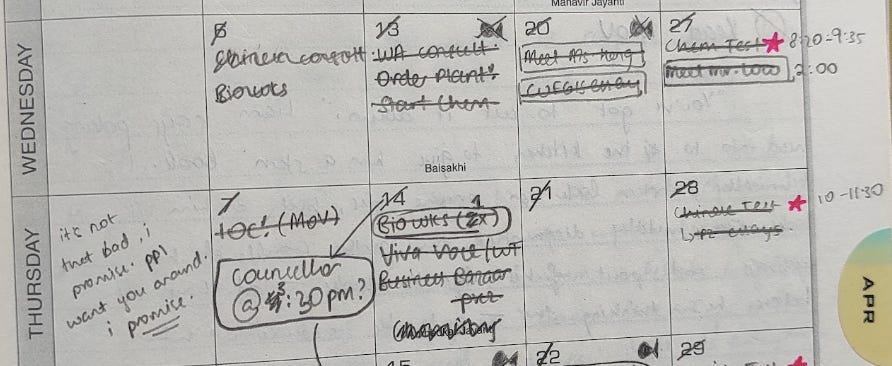 Mahavir Jayanti
WEDNESDAY
6
consult
Biowks
13
WA consult
Order Plant
Start Chem
Baisakhi
20
Meet Ms Heng
27
Chem Test ★ 8:20-9:35
Meet Mr. Low 2:00
THURSDAY
it's not
that bad, i
promise. ppl
want you around.
i promise.
7
(MOV)
councellor
@ :30pm?
14
Bio wks (2x) 1
Viva Voce / WT
Business Bazaar
21
28
Chinese Test ★ 10-11:30
APR
15
22
29